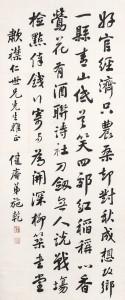 好官經濟只農桑卻對秋成想故鄉
一縣青山低首笑四郊紅稻稱心香
鶯花有酒聯詩社刀劍無人說戰場
檢點俸錢為開深柳築書堂
襟仁世兄先生雅正
健庵弟施乾